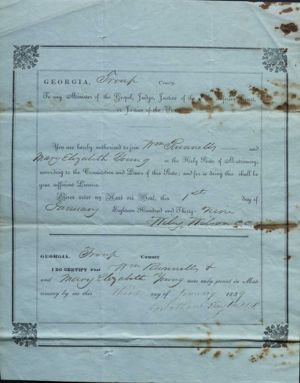 GEORGIA, Troup County
To any Minister of the Gospel, Judge, Justice of the
or Justice of the
You are hereby authorized to join Wm Runnells and
Mary Elizabeth Young in the Holy State of Matrimony,
according to the Constitution and Laws of this State; and for so doing this shall be
your sufficient License.
Given under my Hand and Seal, this 1st day of
January Eighteen Hundred and Thirty-nine
Wiley Wilson
GEORGIA, Troup County
I DO CERTIFY that Wm Runnells
and Mary Elizabeth Young were duly joined in Matri-
mony by me this day of January 1839